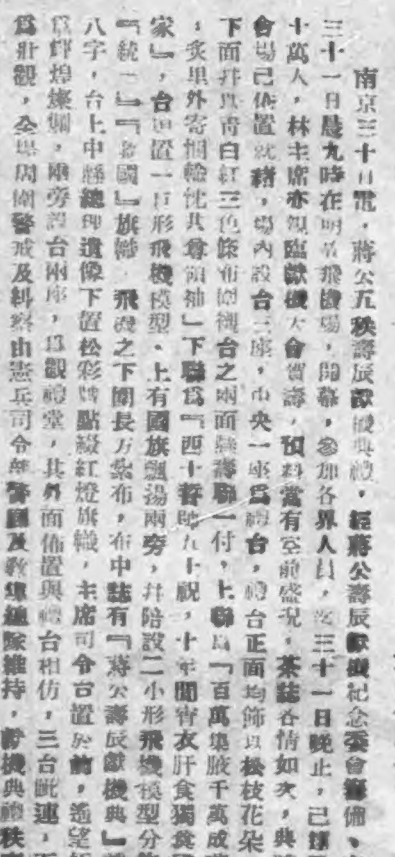 南京三十日電，蔣公五秩壽辰獻機典禮，經蔣公壽辰獻機紀念委會籌備、
三十一日晨九時在明故飛機場，開幕，參加各界人員，迄三十一日晚止，已
十萬人，林主席亦親臨獻機大會賀壽，預料當有空前盛況，茲誌各情如次，典
會場已佈置就緒，場內設台三座，中央一座爲禮台，禮台正面均飾以松枝花朵
下面幷以靑白紅三色條布圍襯台之兩面懸壽聯一付，上聯爲『百萬集腋千萬成
，亥里外寄悃輸忱共尊領袖」下聯爲『四十誓師五十祝，十年間宵衣旰食獨
家』，台 置一巨形飛機模型・上有國旗飄揚兩旁，幷陪設二小形飛機模型分
『統一』『 國』旗幟 飛機之下圍長方紫布，布中誌有『蔣公壽辰獻機典』
八字，台上中懸總理遺像下置松彩牌點綴紅燈旗幟，主席司令台置於前，遙望
爲輝煌燦爛，兩旁設台兩座，爲觀禮堂，其外面佈置與禮台相仿，三台毗連，
爲壯觀，全場周圍警戒及糾察由憲兵司令 警 及敎 總隊維持， 機典禮秩